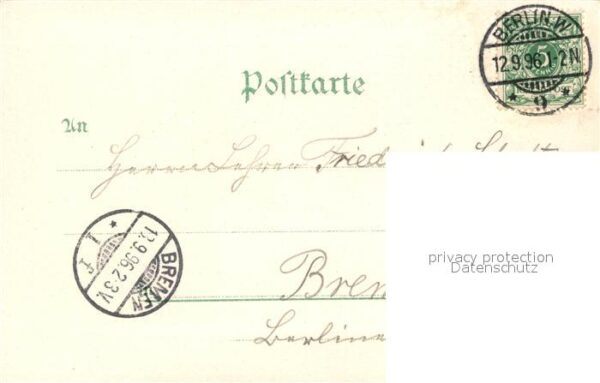 BERLIN.W.
12.9.96.1-2N.
* 9 *
5
Postkarte
An
Herrn Lehrer Fried
Brem
Berliner
BREMEN
13.9.96.2-3V.
* 1 F
privacy protection
Datenschutz